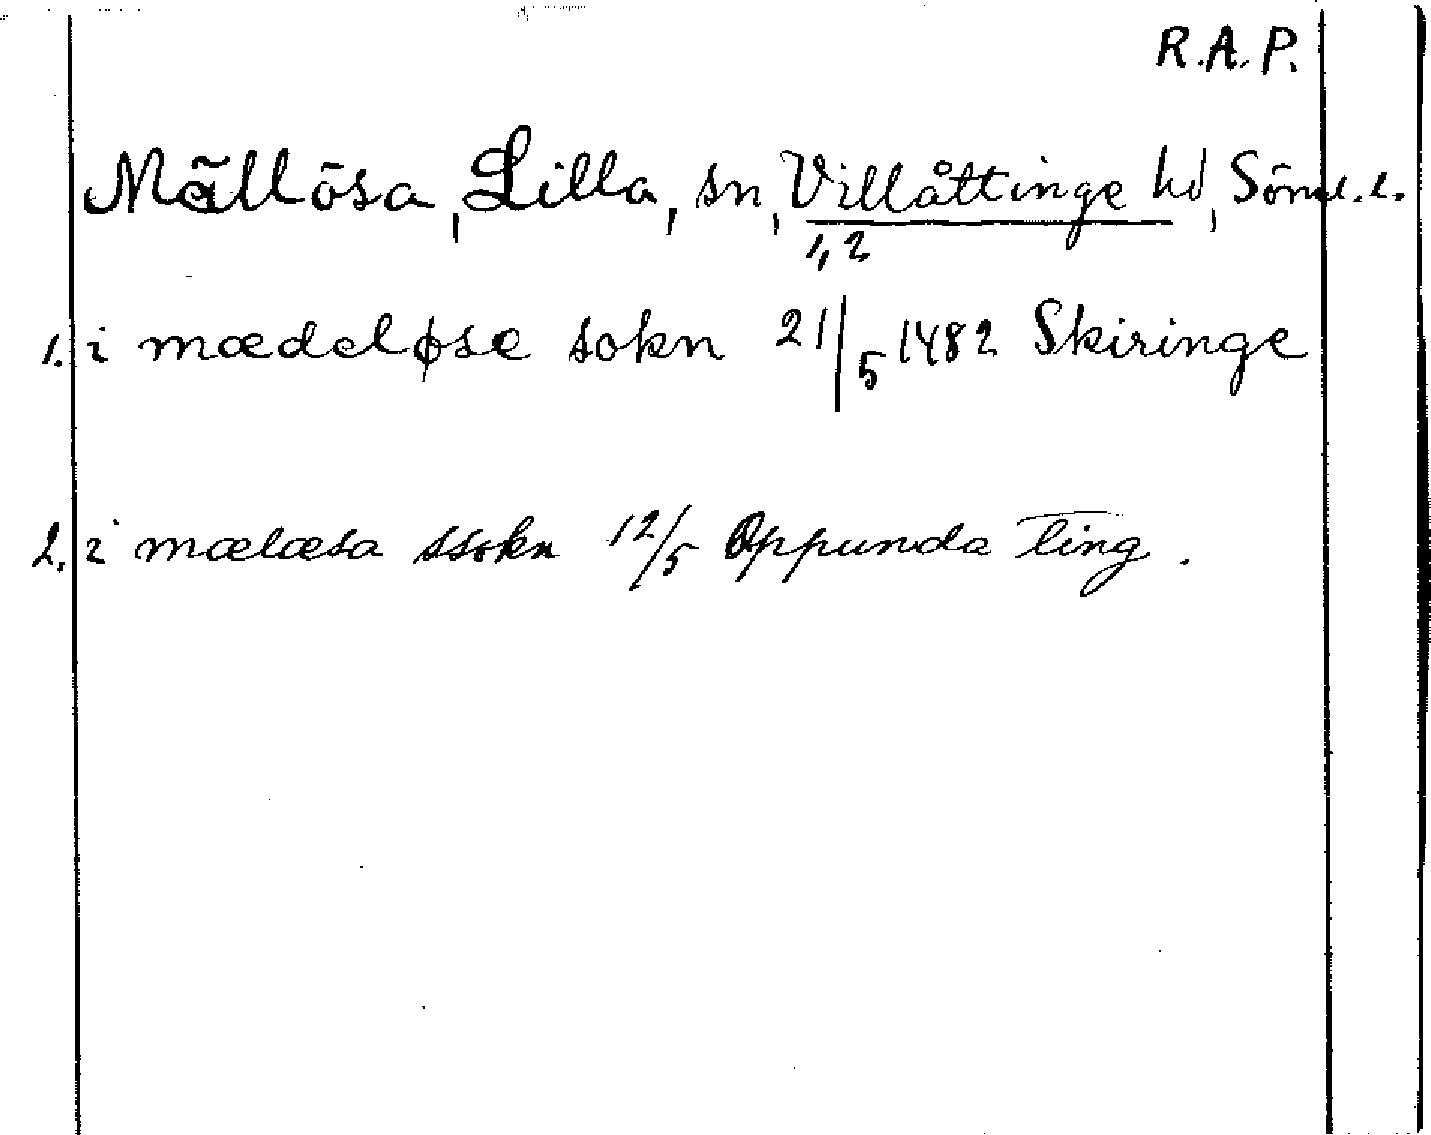 R.A.P.
Mällösa, Lilla, sn, Villåttinge hd, Sörml.
1,2
1. i mædeløse sokn 21/5 1482 Skiringe
2. i mælæsa ssokn 12/5 Oppunda Ting.